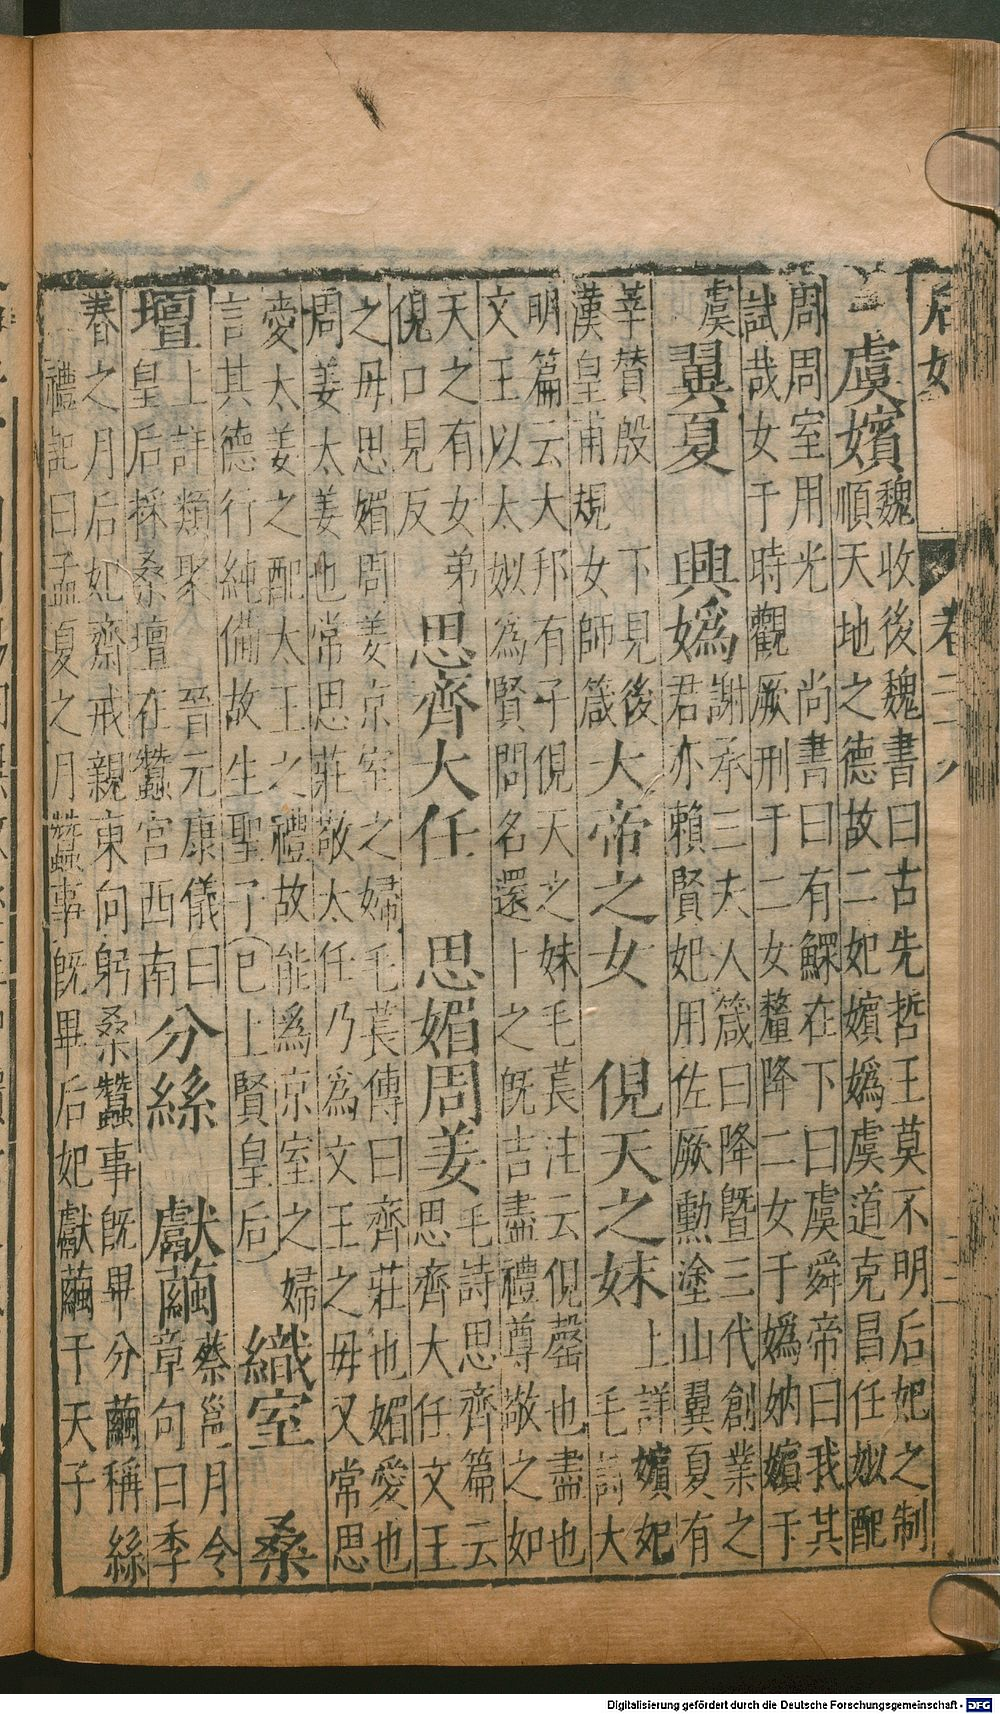 虞嬪
魏收後魏書曰古先哲王莫不明后妃之制
順天地之德故二妃嬪媯虞道克昌任姒配
周周室用光 尚書曰有鰥在下曰虞舜帝曰我其
試哉女于時觀厥刑于二女釐降二女于媯汭嬪于
虞
翼夏 興媯
謝承三夫人箴曰降暨三代創業之
君亦賴賢妃用佐厥勳塗山翼夏有
莘贊殷 下見後
漢皇甫規女師箴
大帝之女 俔天之妹
上詳嬪妃
毛詩大
明篇云大邦有子俔天之妹毛萇注云俔罄也盡也
文王以太姒為賢問名還卜之既吉盡禮尊敬之如
天之有女弟
俔口見反
思齊大任 思媚周姜
毛詩思齊篇云
思齊大任文王
之母思媚周姜京室之婦毛萇傳曰齊莊也媚愛也
周姜太姜也常思莊敬太任乃為文王之母又常思
愛太姜之配太王之禮故能為京室之婦
言其德行純備故生聖子已上賢皇后
織室 桑
壇
上詳類聚 晉元康儀曰
皇后採桑壇在蠶宮西南
分絲 獻繭
蔡邕月令
章句曰季
春之月后妃齋戒親東向躬桑蠶事既畢分繭稱絲
禮記曰孟夏之月蠶事既畢后妃獻繭于天子
Digitalisierung gefördert durch die Deutsche Forschungsgemeinschaft - DFG